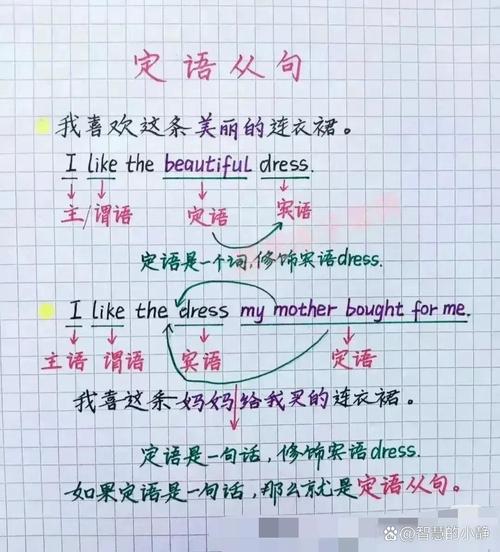 定语从句
我喜欢这条美丽的连衣裙。
I like the beautiful dress.
主/谓语 定语 宾语
定语是一个词,修饰宾语dress.
I like the dress my mother bought for me.
主语 谓语 宾语 定语
我喜这条妈妈给我买的连衣裙。
定语是一句话,修饰宾语dress.
如果定语是一句话,那么就是定语从句。
智慧的小静